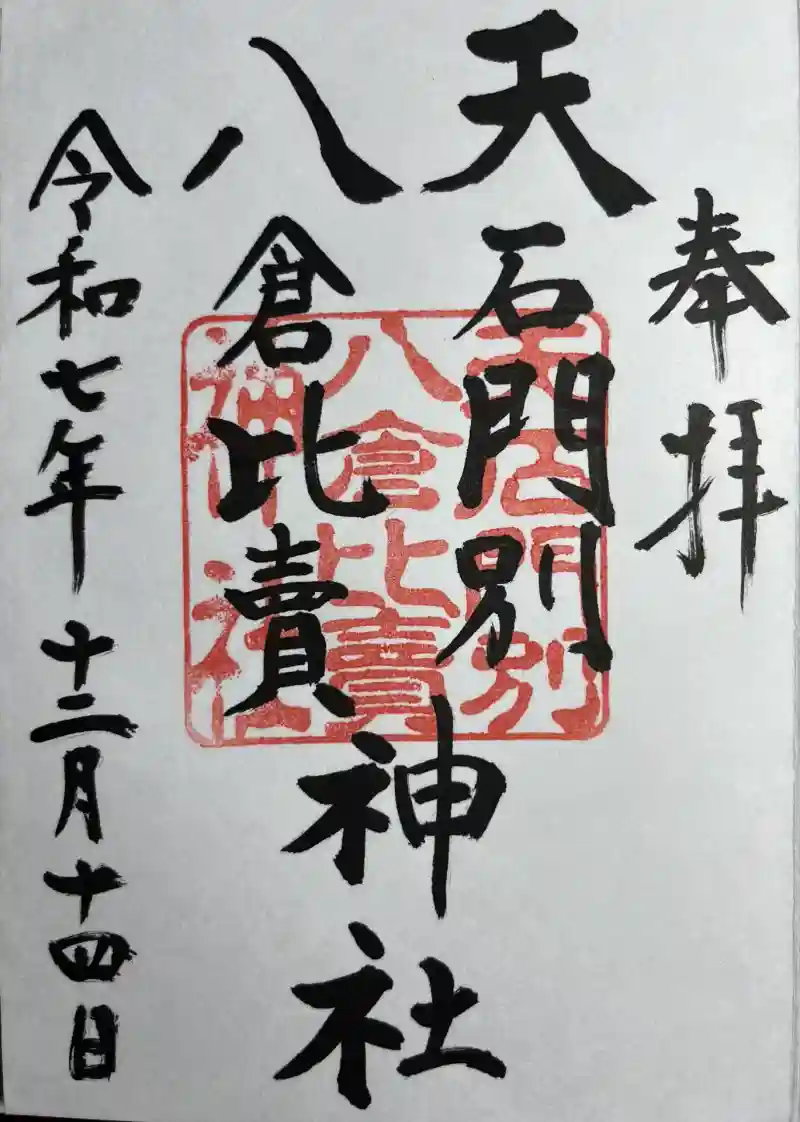 奉拝
天石門別
八倉比賣
神社
令和七年十二月十四日
天石門別
八倉比賣
神社